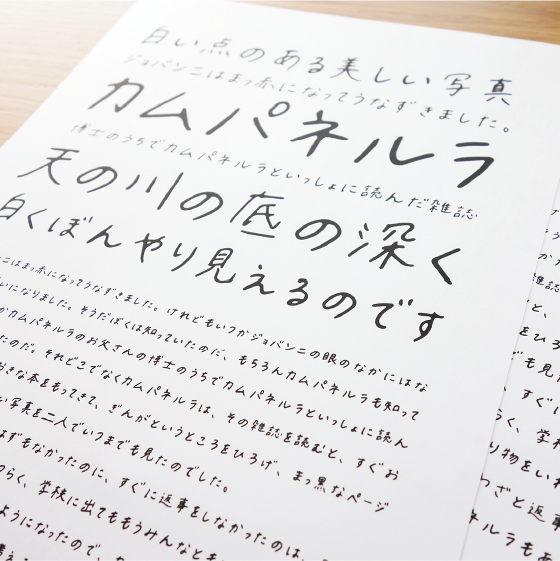 白い点のある美しい写真
ジョバンニはまっ赤になってうなずきました。
カムパネルラ
博士のうちでカムパネルラといっしょに読んだ雑誌
天の川の底の深く
白くぼんやり見えるのです
ニはまっ赤になってうなずきました。けれどもいつかジョバンニの眼のなかにはな
いになりました。そうだぼくは知っていたのだ、もちろんカムパネルラも知って
がカムパネルラのお父さんの博士のうちでカムパネルラといっしょに読ん
たのだ。それどこでなくカムパネルラは、その雑誌を読むと、すぐお
おきな本をもってきて、ぎんがというところをひろげ、まっ黒なページ
い写真を二人でいつまでも見たのでした。
はずもなかったのに、すぐに返事をしなかったのは、
つらく、学校に出てももうみんなとも
ようになったので、